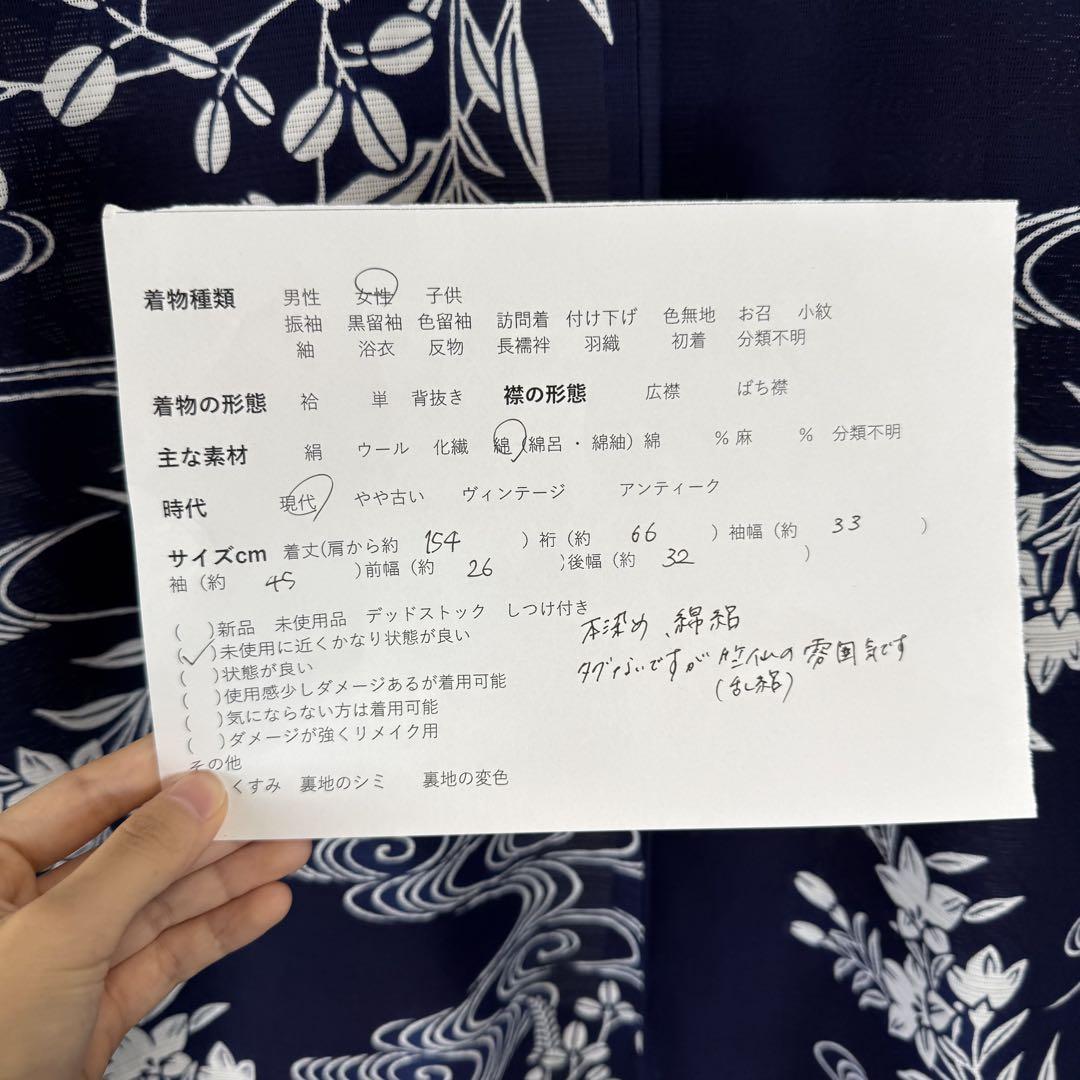 着物種類 男性 女性 子供
振袖 黒留袖 色留袖 訪問着 付け下げ 色無地 お召 小紋
紬 浴衣 反物 長襦袢 羽織 初着 分類不明
着物の形態 袷 単 背抜き 襟の形態 広襟 ばち襟
主な素材 絹 ウール 化繊 綿（綿呂・綿紬）綿 %麻 % 分類不明
時代 現代 やや古い ヴィンテージ アンティーク
サイズcm 着丈(肩から約 154 ) 裄（約 66 ) 袖幅（約 33 )
袖（約 45 )前幅（約 26 )後幅（約 32 )
( )新品 未使用品 デッドストック しつけ付き
(✓)未使用に近くかなり状態が良い
( )状態が良い
( )使用感少しダメージあるが着用可能
( )気にならない方は着用可能
( )ダメージが強くリメイク用
その他
くすみ 裏地のシミ 裏地の変色
本染め、綿絽
タグないですが竺仙の雰囲気です
(乱絽)